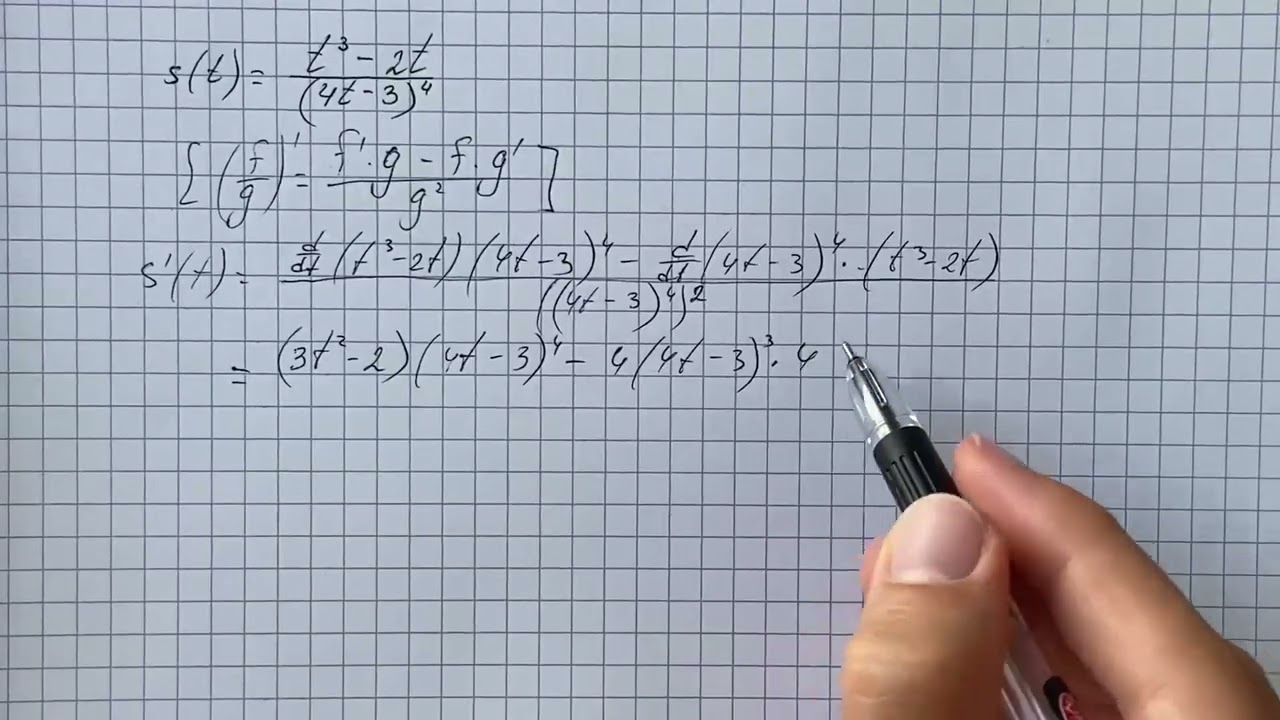 s(t) = (t³ - 2t) / (4t - 3)⁴
[(f/g)' = (f' · g - f · g') / g²]
s'(t) = (d/dt (t³ - 2t) (4t - 3)⁴ - d/dt (4t - 3)⁴ · (t³ - 2t)) / ((4t - 3)⁴)²
= (3t² - 2)(4t - 3)⁴ - 4(4t - 3)³ · 4